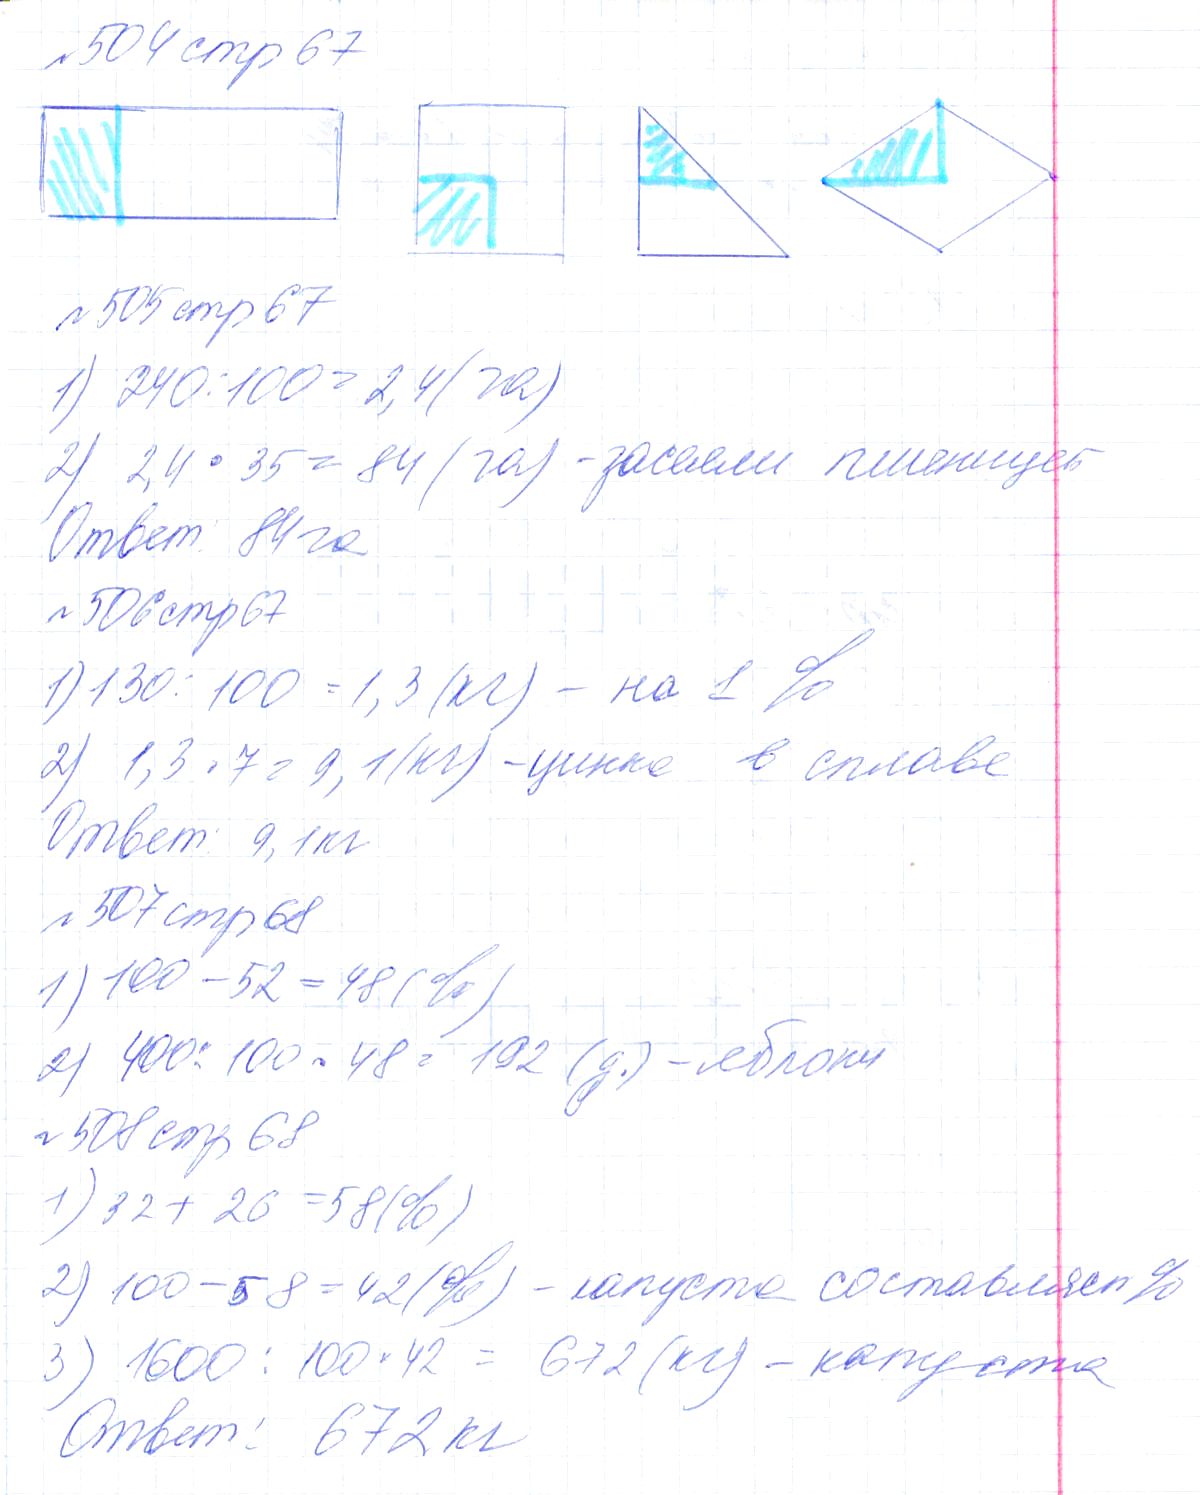 №504 стр 67
№505 стр 67
1) 240:100=2,4(га)
2) 2,4•35=84(га)-засеяли пшеницей
Ответ: 84га
№506 стр 67
1)130:100=1,3(кг) – на 1 %
2) 1,3•7=9,1(кг)-цинка в сплаве
Ответ: 9,1кг
№507 стр 68
1)100-52=48(%)
2) 400:100•48=192 (д.)-яблони
№508 стр 68
1)32+26=58(%)
2)100-58=42(%)-капуста составляет%
3) 1600:100•42=672(кг)-капуста
Ответ: 672кг